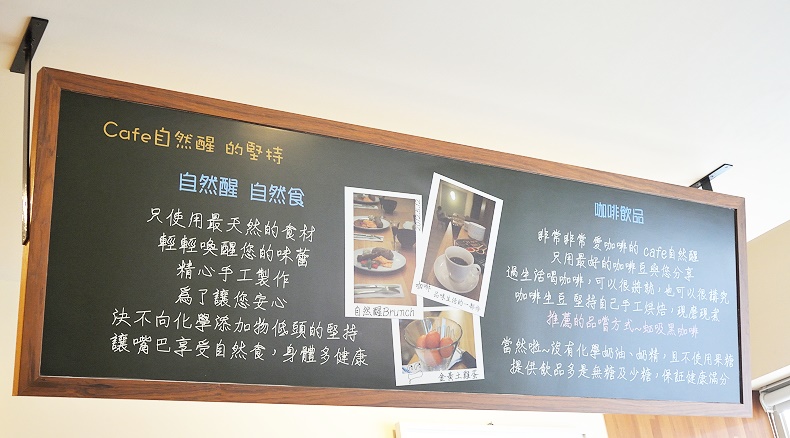 Cafe自然醒 的堅持
自然醒 自然食
只使用最天然的食材
輕輕喚醒您的味蕾
精心手工製作
為了讓您安心
決不向化學添加物低頭的堅持
讓嘴巴享受自然食，身體多健康
自然醒Brunch
咖啡 品味生活的一部份
金黃土雞蛋
咖啡飲品
非常非常 愛咖啡的 cafe自然醒
只用最好的咖啡豆與您分享
過生活喝咖啡，可以很將就，也可以很講究
咖啡生豆 堅持自己手工烘焙，現磨現煮
推薦的品嚐方式~虹吸黑咖啡
當然啦~沒有化學奶油、奶精，且不使用果糖
提供飲品多是無糖及少糖，保証健康滿分